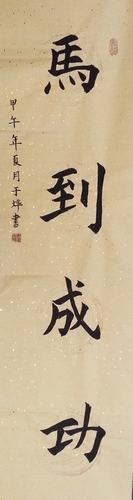 馬到成功
甲午年夏月于燁書